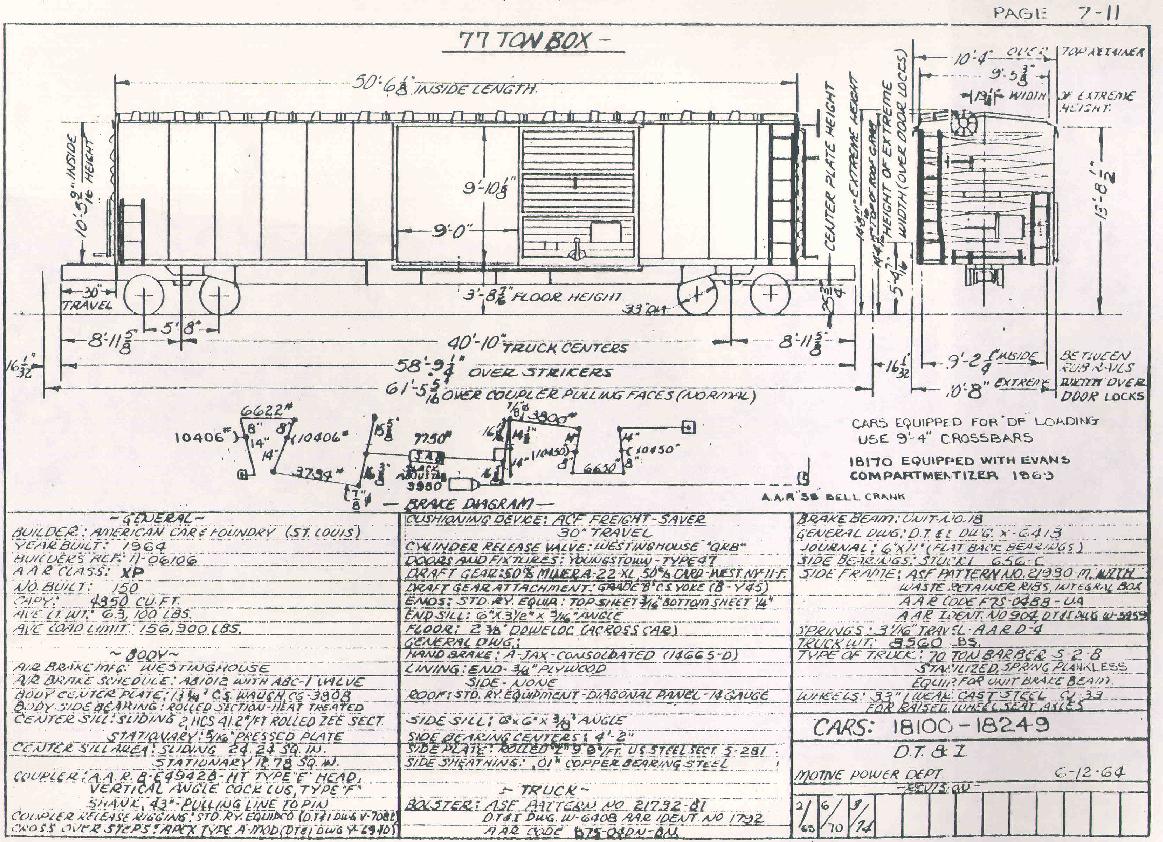 PAGE 7-11
77 TON BOX -
50'-6 1/8" INSIDE LENGTH
INSIDE HEIGHT
9'-10 1/8"
9'-0"
30" TRAVEL
3'-8 FLOOR HEIGHT
33" DIA
5'-8"
8'-11 5/8"
40'-10" TRUCK CENTERS
8'-11 5/8"
58'-9 1/4" OVER STRIKERS
61'-5 5/16" OVER COUPLER PULLING FACES (NORMAL)
16 1/32"
16 1/32"
CENTER PLATE HEIGHT
25 3/4"
EXTREME HEIGHT
HEIGHT OF EXTREME
WIDTH (OVER DOOR LOCKS)
10'-4" OVER TOP RETAINER
9'-5 3/8"
WIDTH OF EXTREME
HEIGHT
13'-8 1/2"
9'-2 1/4" INSIDE BETWEEN
RUB RAILS
10'-8" EXTREME WIDTH OVER
DOOR LOCKS
6622#
8" 8"
10406# 14" 10406#
14"
3794#
7 1/8"
15 5/8"
16 3/8"
7750#
SLACK
ADJUSTER
3950
3800#
14"
14"
8"
10450#
6650#
14"
8"
10450#
- BRAKE DIAGRAM -
CARS EQUIPPED FOR "DF" LOADING
USE 9'-4" CROSSBARS
18170 EQUIPPED WITH EVANS
COMPARTMENTIZER 1963
A.A.R '58 BELL CRANK
- GENERAL -
BUILDER: AMERICAN CAR & FOUNDRY (ST. LOUIS)
YEAR BUILT: 1964
BUILDERS REF: 11-06106
A A R CLASS: XP
NO. BUILT: 150
CAPY: 4950 CU. FT.
AVE LT WT: 63,100 LBS.
AVE LOAD LIMIT: 156,900 LBS.
~ BODY ~
AIR BRAKE MFG: WESTINGHOUSE
AIR BRAKE SCHEDULE: AB1012 WITH ABC-1 VALVE
BODY CENTER PLATE: 13 3/4" C.S. WAUGH CG-3808
BODY SIDE BEARING: ROLLED SECTION-HEAT TREATED
CENTER SILL: SLIDING 2 HCS 41.2#/FT ROLLED ZEE SECT.
STATIONARY: 5/16" PRESSED PLATE
CENTER SILL AREA: SLIDING 24.24 SQ. IN.
STATIONARY 12.78 SQ. IN.
COUPLER: A.A.R. B-E49428-HT TYPE "E" HEAD,
VERTICAL ANGLE COCK LUG, TYPE "F"
SHANK, 43"-PULLING LINE TO PIN
COUPLER RELEASE RIGGING: STD. RY. EQUIPCO (DT&I DWG
CROSS OVER STEPS: APEX TYPE A-MOD (DT&I DWG
CUSHIONING DEVICE: ACF FREIGHT-SAVER
30" TRAVEL
CYLINDER RELEASE VALVE: WESTINGHOUSE "QRB"
DOORS AND FIXTURES: YOUNGSTOWN-TYPE 47
DRAFT GEAR: 50% MINER A-22-XL, 50% CARD-WEST. NY-11-F
DRAFT GEAR ATTACHMENT: GRADE "B" C.S. YOKE (B-Y45)
ENDS: STD. RY. EQUIP: TOP SHEET 3/16" BOTTOM SHEET 1/4"
END SILL: 6" X 3 1/2" X 5/16" ANGLE
FLOOR: 2 3/8" DOWELOC (ACROSS CAR)
GENERAL DWG:
HAND BRAKE: AJAX-CONSOLDATED (14665-D)
LINING: END 3/4" PLYWOOD
SIDE-NONE
ROOF: STD. RY. EQUIPMENT-DIAGONAL PANEL-14 GAUGE
SIDE SILL: 6" X 6" X 3/8" ANGLE
SIDE BEARING CENTERS: 4'-2"
SIDE PLATE: ROLLED "Z" 9.8#/FT. US STEEL SECT. S-281
SIDE SHEATHING: .01" COPPER BEARING STEEL
- TRUCK -
BOLSTER: ASF PATTERN NO 21792-B1
DT&I DWG. W-6408 AAR IDENT NO 1792
AAR CODE
BRAKE BEAM: UNIT-NO. 18
GENERAL DWG: DT & I DWG. X-6413
JOURNAL: 6" X 11" (FLAT BACK BEARINGS)
SIDE BEARINGS: STUCKI 656-C
SIDE FRAME: ASF PATTERN NO. 21990-M WITH
WASTE RETAINER RIBS, INTEGRAL BOX
A A R CODE F7S-04BB-UA
A A R IDENT. NO 904, DT&I DWG W-5959
SPRINGS: 3 1/16" TRAVEL - A A R D-4
TRUCK WT: 8560 LBS.
TYPE OF TRUCK: 70 TON BARBER S-2-B
STABILIZED SPRING PLANKLESS
EQUIP FOR UNIT BRAKE BEAM
WHEELS: 33" 1 WEAR CAST STEEL CJ-33
FOR RAISED WHEEL SEAT AXLES
CARS: 18100-18249
D.T. & I
MOTIVE POWER DEPT 6-12-64
- REVISION -
2/65 6/70 9/74